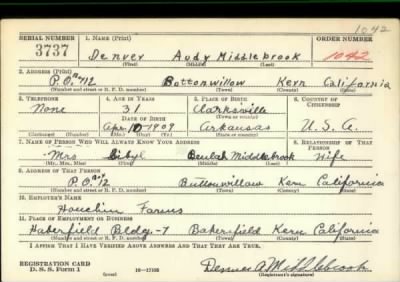 1042
SERIAL NUMBER 1. NAME (Print) ORDER NUMBER
3737 Denver Audy Middlebrook 1042
(First) (Middle) (Last)
2. ADDRESS (Print)
P.O. #712 Buttonwillow Kern California
(Number and street or R. F. D. number) (Town) (County) (State)
3. TELEPHONE 4. AGE IN YEARS 5. PLACE OF BIRTH 6. COUNTRY OF CITIZENSHIP
None 31 Clarksville
DATE OF BIRTH (Town or county)
Apr. 10 1909 Arkansas U.S.A.
(Exchange) (Number) (Mo.) (Day) (Yr.) (State or country)
7. NAME OF PERSON WHO WILL ALWAYS KNOW YOUR ADDRESS 8. RELATIONSHIP OF THAT PERSON
Mrs Sibyl Beulah Middlebrook Wife
(Mr., Mrs., Miss) (First) (Middle) (Last)
9. ADDRESS OF THAT PERSON
P.O. Buttonwillow Kern California
(Number and street or R. F. D. number) (Town) (County) (State)
10. EMPLOYER'S NAME
Houchin Farms
11. PLACE OF EMPLOYMENT OR BUSINESS
Haberfield Bldg-7 Bakersfield Kern California
(Number and street or R. F. D. number) (Town) (County) (State)
I AFFIRM THAT I HAVE VERIFIED ABOVE ANSWERS AND THAT THEY ARE TRUE.
REGISTRATION CARD
D. S. S. Form 1 (over) 16-17105 Denver A Middlebrook
(Registrant's signature)